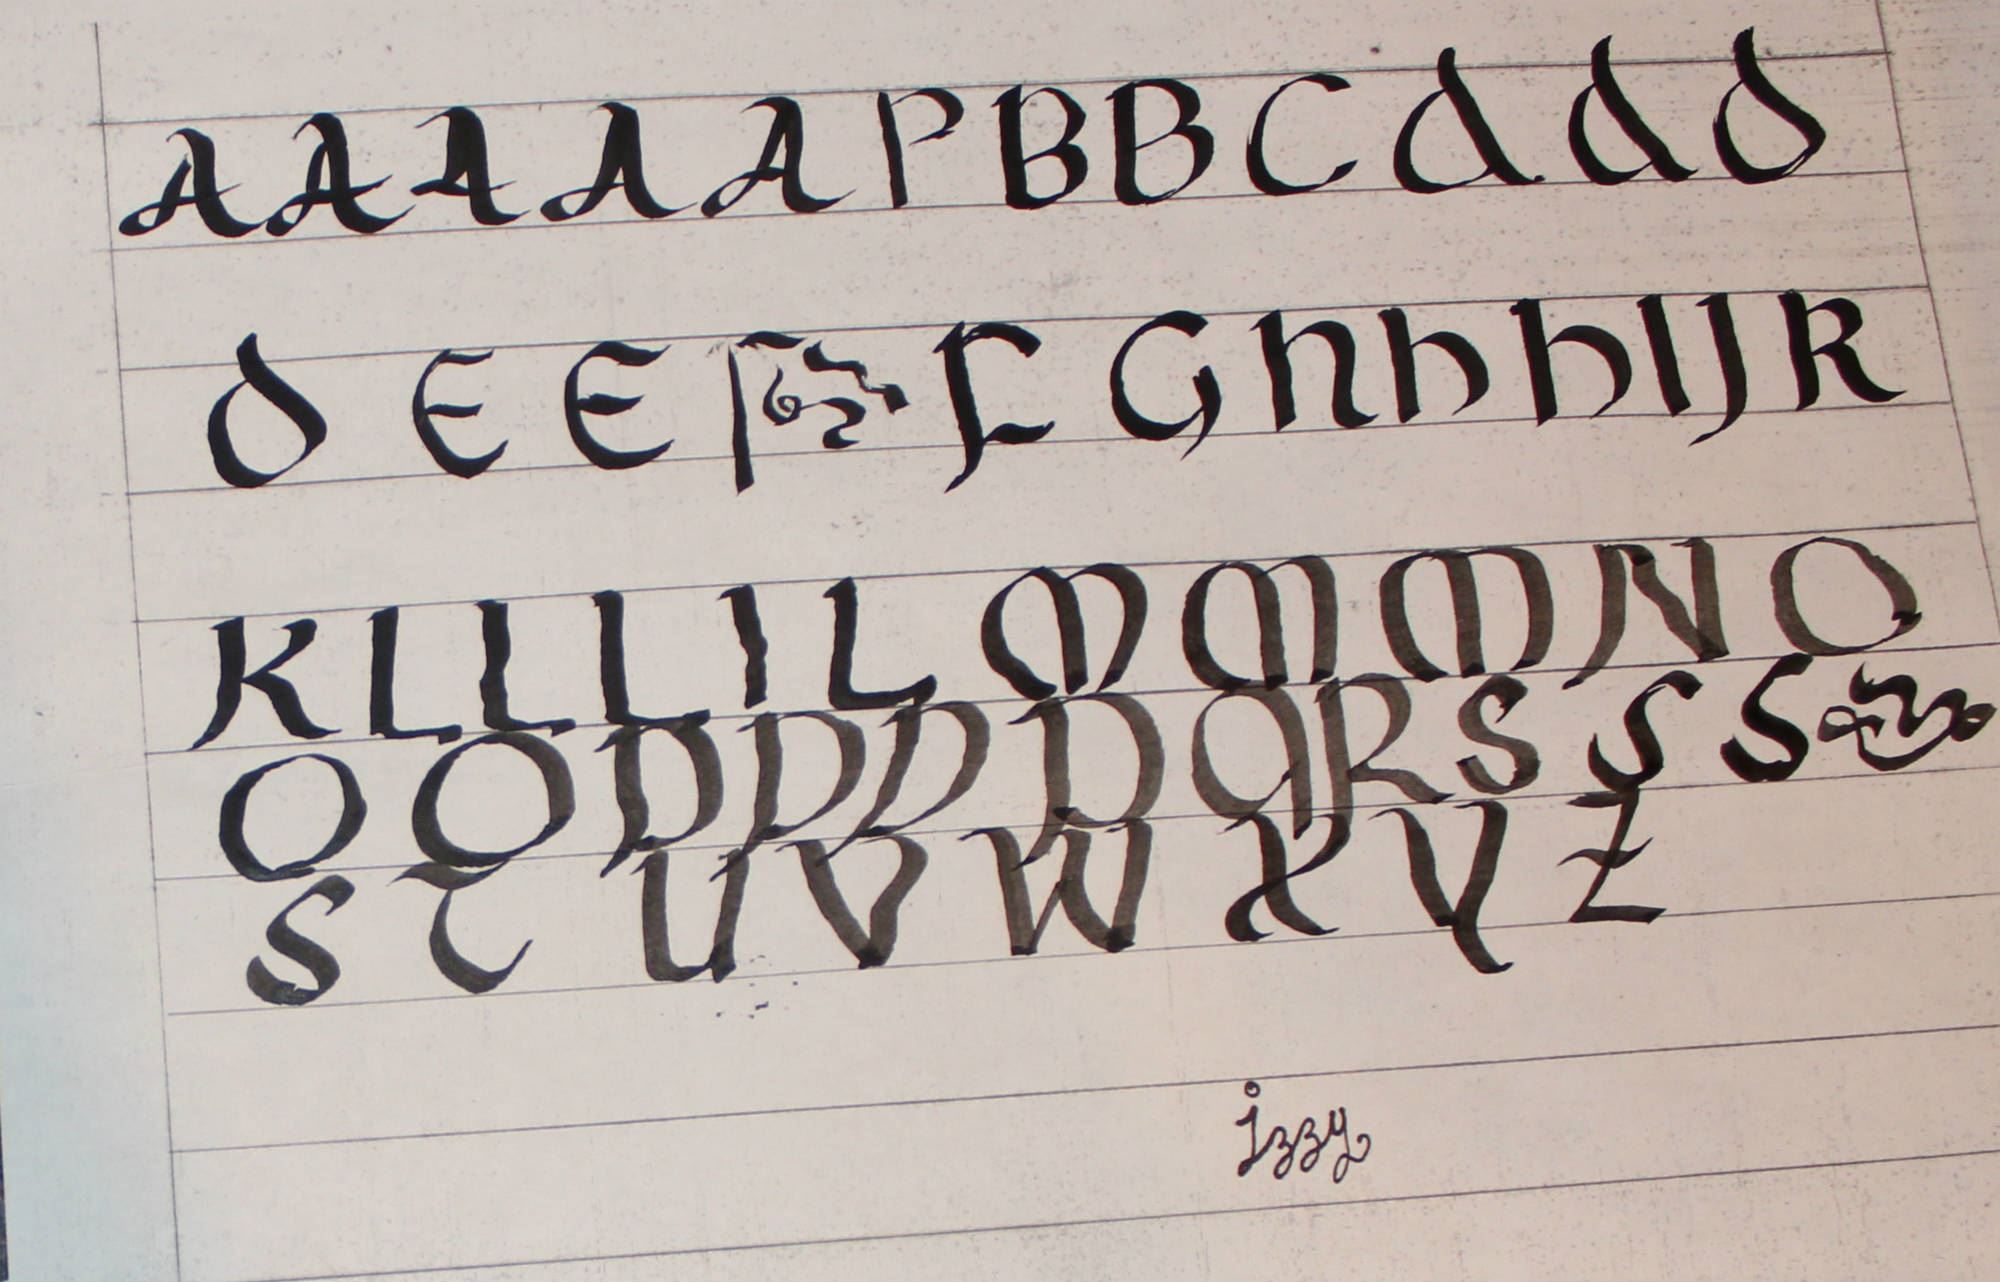 A A A A A P B B C d d d
d E E F G h h h I J K
K L L L I L M M M N O
O O P P P P Q R S S S
S T U V W X Y Z
izzy